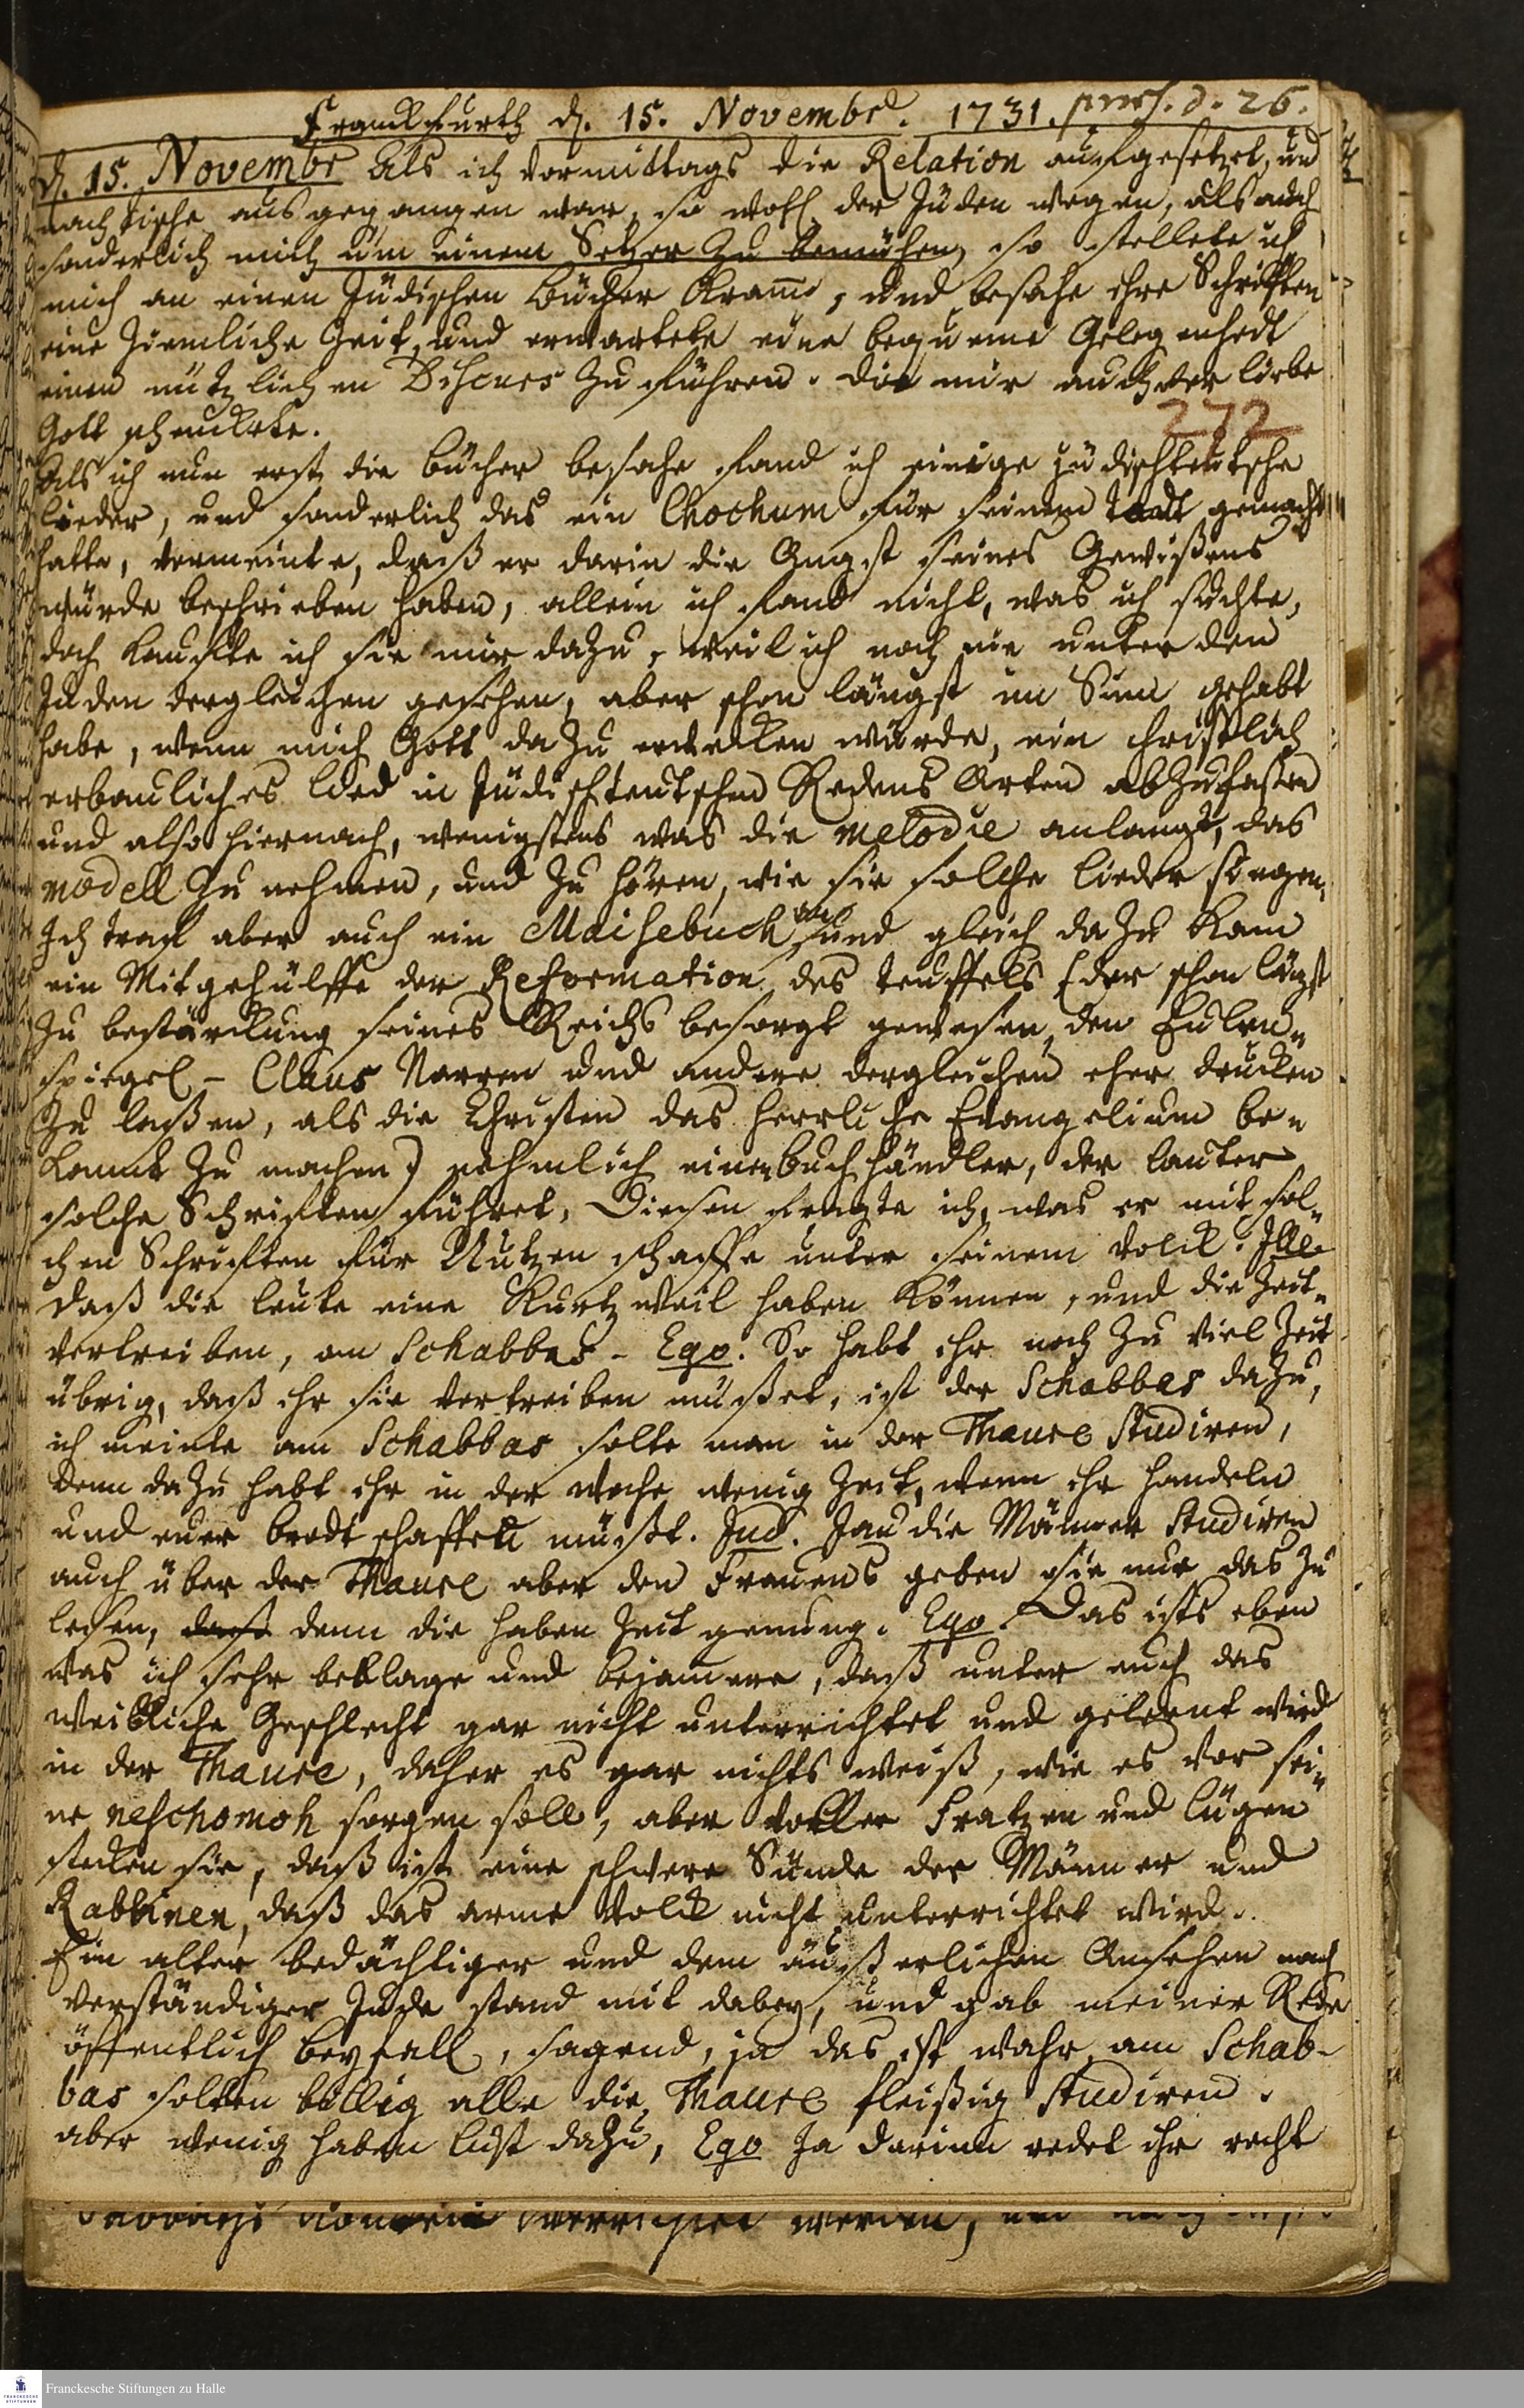 Franckfurth d. 15. Novembr. 1731. præs. d. 26.
d. 15. Novembr Als ich vormittags die Relation aufgesetzet, und
nach tische ausgegangen war, so wohl der Jüden wegen, als auch
sonderlich mich um einem Setzer zu bemühen, so stellete ich
mich an einen Jüdischen Bücher Kram, und besahe ihre Schrifften
eine ziemliche Zeit, und erwartete eine bequeme Gelegenheit
einen nützlichen Discurs zu führen. die mir auch der liebe
Gott schenckte.
272
Als ich nun erst die bücher besahe fand ich einige jüdischteutsche
lieder, und sonderlich das ein Chochum für seinem todt gemacht
hatte, vermeinte, daß er darin die Angst seines Gewißens
würde beschrieben haben, allein ich fand nicht, was ich suchte,
doch kauffte ich sie mir dazu, weil ich noch nie unter den
Juden dergleichen gesehen, aber schon längst im Sinn gehabt
habe, wenn mich Gott dazu erwecken würde, ein christlich
erbauliches lied in Jüdischteutschen Redens Arten abzufaßen
und also hiernach, wenigstens was die melodie anlangt, das
modell zu nehmen, und zu hören, wie sie solche lieder singen.
Ich traf aber auch ein Maisebuch und gleich dazu kam
ein Mitgehülffe der Reformation des teuffels (der schon längst
zu bestärckung seines Reichs besorgt gewesen, den Eulen-
spiegel - Claus Narren und andere dergleichen eher drucken
zu laßen, als die Christen das herrliche Evangelium be-
kannt zu machen) nehmlich einen buchhändler, der lauter
solche Schrifften führet, Diesen fragte ich, was er mit sol-
chen Schrifften für Nutzen schaffe unter seinem volck. Ille
daß die leute eine Kurtzweil haben können, und die Zeit
vertreiben, am Schabbas - Ego. So habt ihr noch zu viel Zeit
übrig, daß ihr sie vertreiben müßet, ist der Schabbas dazu,
ich meinte am Schabbas solte man in der Thaure studiren,
denn dazu habt ihr in der woche wenig Zeit, wenn ihr handeln
und euer brodt schaffen müßt. Jud. Jau die Männer studiren
auch über der Thaure aber den Frauens geben sie nur das zu
lesen, daß denn die haben Zeit genung. Ego. Das ists eben
was ich sehr beklage und bejamere, daß unter euch das
weibliche Geschlecht gar nicht unterrichtet und gelernt wird
in der Thaure, daher es gar nichts weiß, wie es vor sei-
ne neschomoh sorgen soll, aber voller Fratzen und lügen
stecken sie, daß ist eine schwere Sünde der Männer und
Rabbinen, daß das arme Volck nicht unterrichtet wird.
Ein alter bedächtiger und dem äußerlichen Ansehen nach
verständiger Jude stand mit dabey, und gab meiner Rede
öffentlich beyfall, sagend, ja das ist wahr am Schab-
bas solten billig alle die Thaure fleißig studiren.
aber wenig haben lust dazu, Ego Ja darinn redet ihr recht
werden,
Franckesche Stiftungen zu Halle